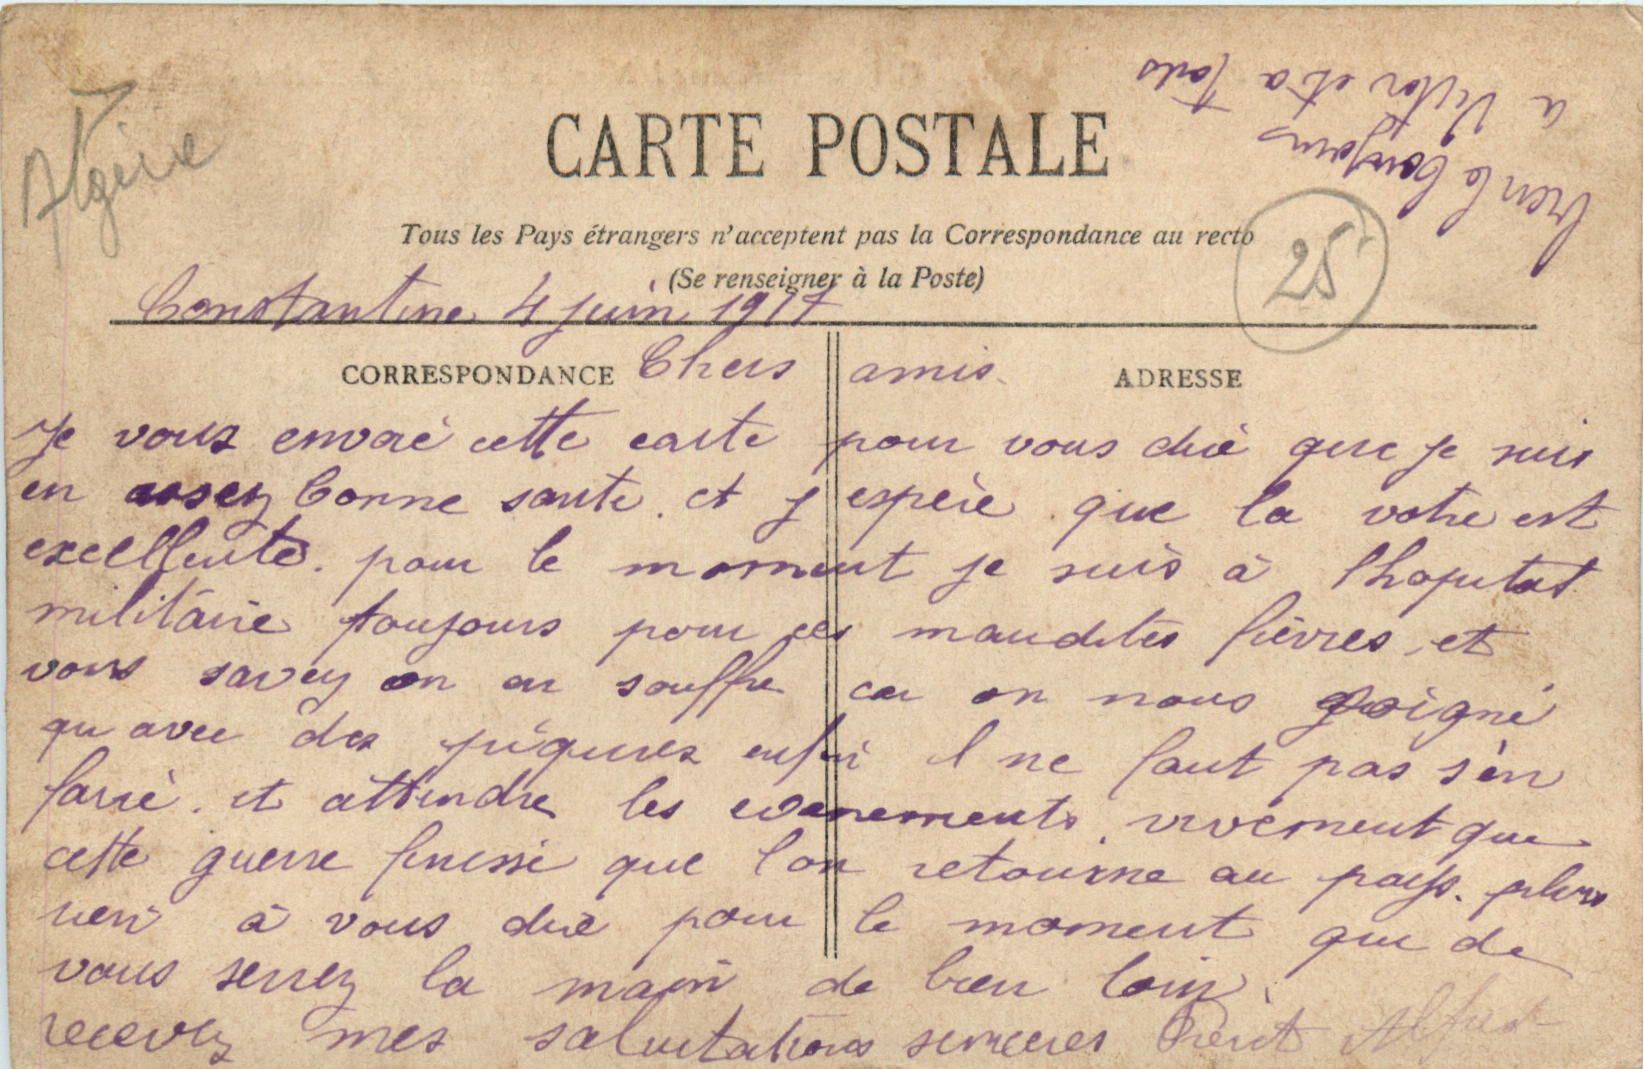 Algérie
CARTE POSTALE
Tous les Pays étrangers n'acceptent pas la Correspondance au recto
(Se renseigner à la Poste)
25
bien le bonjours
a Victor et a Tous
Constantine 4 juin 1917
CORRESPONDANCE
ADRESSE
Chers amis.
Je vous envoié cette carte pour vous dire que je suis
en assez bonne sante. et j espére que la votre est
excellente. pour le moment je suis à lhopital
militaire toujours pour ces maudites fièvres, et
vous savez on en souffre car on nous soigné
qu avec des piqures enfin il ne faut pas s'en
faire. et attendre les evenements. vivement que
cette guerre finisse que l'on retourne au pays. plus
rien à vous dire pour le moment que de
vous serrez la main de bien loin.
recevez mes salutations sinceres